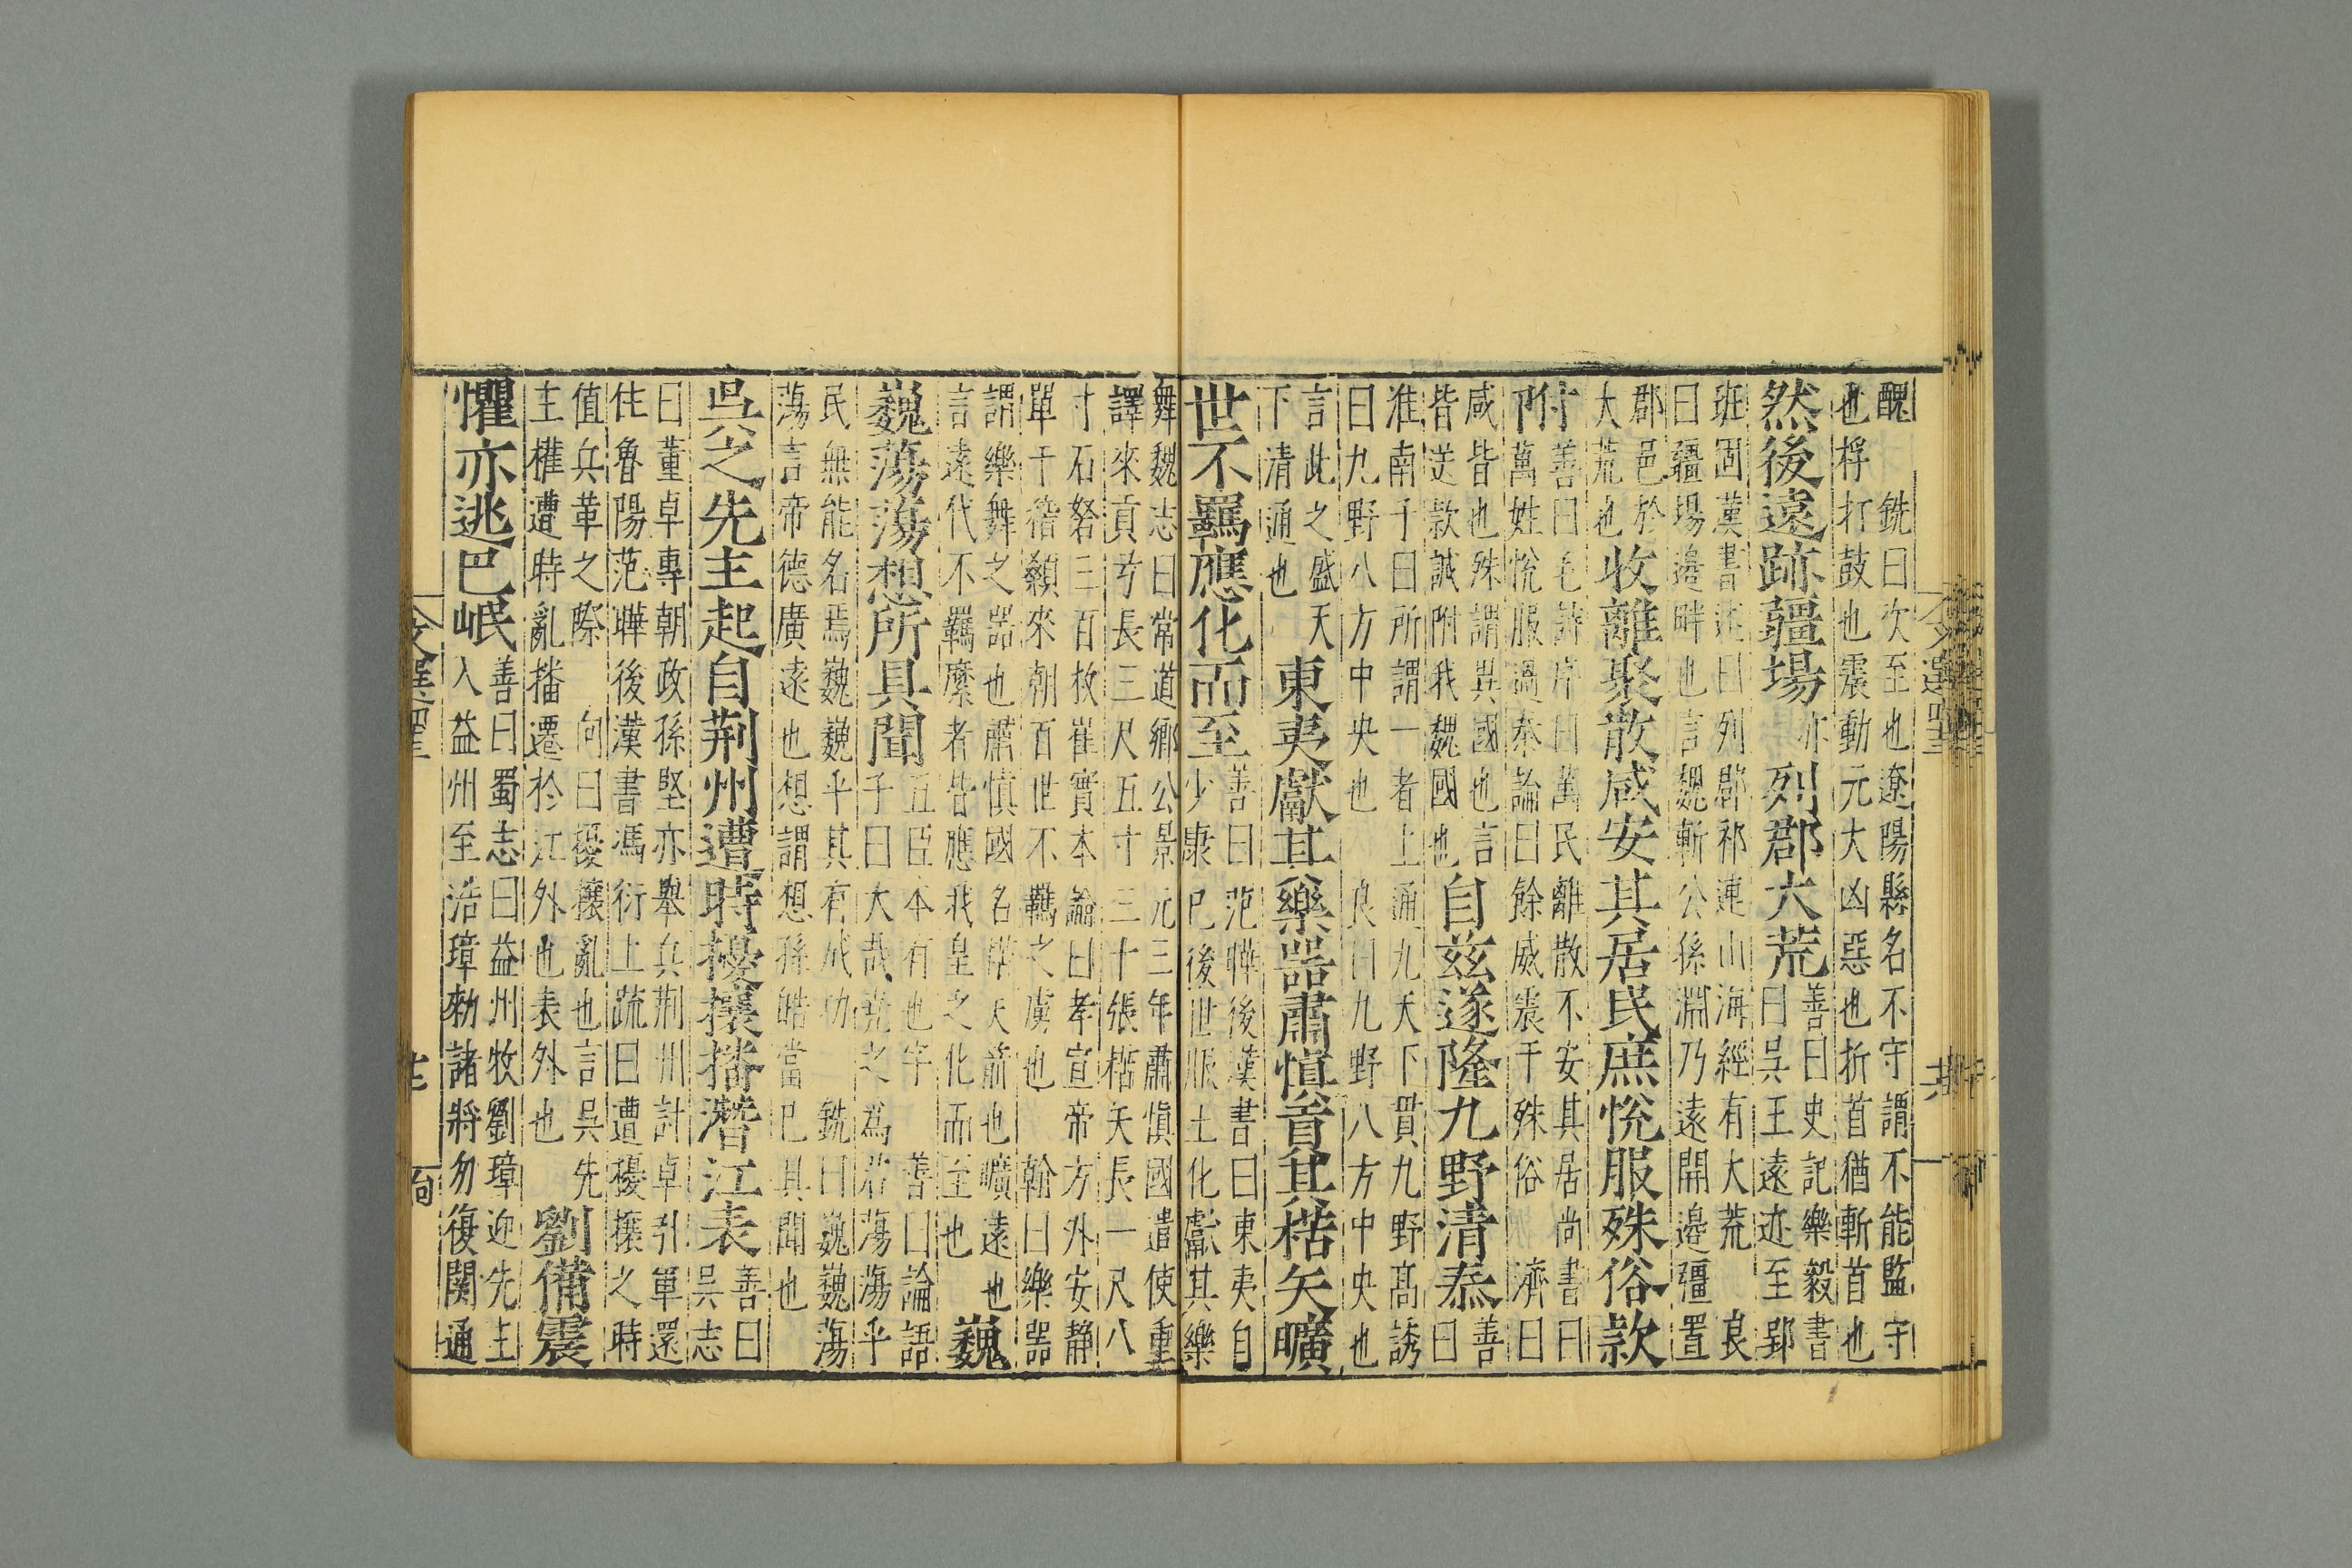 醜　銑曰次至也遼陽縣名不守謂不能監守
也桴打鼓也震動元大凶惡也折首猶斬首也
然後遠跡疆場亦列郡大荒善曰史記樂毅書
曰吳王遠迹至郢
班固漢書述曰列郡祁連山海經有大荒　良
曰疆場邊畔也言魏斬公孫淵乃遠開邊疆置
郡邑於
大荒也收離聚散咸安其居民庶悅服殊俗款
附善曰毛詩序曰萬民離散不安其居尚書曰
萬姓悅服過秦論曰餘威震于殊俗　濟曰
咸皆也殊謂異國也言
皆送款誠附我魏國也自茲遂隆九野清泰善
曰
淮南子曰所謂一者上通九天下貫九野高誘
曰九野八方中央也　良曰九野八方中央也
言此之盛天
下清通也　東夷獻其樂器肅慎貢其楛矢曠
世不羈應化而至善曰范曄後漢書曰東夷自
少康已後世服王化獻其樂
舞魏志曰常道鄉公景元三年肅慎國遣使重
譯來貢弓長三尺五寸三十張楛矢長一尺八
寸石砮三百枚崔寔本論曰孝宣帝方外安靜
單于稽顙來朝百世不羈之虜也　翰曰樂器
謂樂舞之器也肅慎國名楛矢箭也曠遠也
言遠代不羈縻者皆應我皇之化而至也　巍
巍蕩蕩想所具聞五臣本有也字　善曰論語
子曰大哉堯之為君蕩蕩乎
民無能名焉巍巍乎其有成功　銑曰巍巍蕩
蕩言帝德廣遠也想謂想孫皓當已具聞也
吳之先主起自荊州遭時擾攘播潛江表善曰
吳志
曰董卓專朝政孫堅亦舉兵荊州討卓引軍還
住魯陽范曄後漢書馮衍上疏曰遭擾攘之時
值兵革之際　向曰擾攘亂也言吳先
主權遭時亂播遷於江外也表外也　劉備震
懼亦逃巴岷善曰蜀志曰益州牧劉璋迎先主
入益州至涪璋勑諸將勿復關通